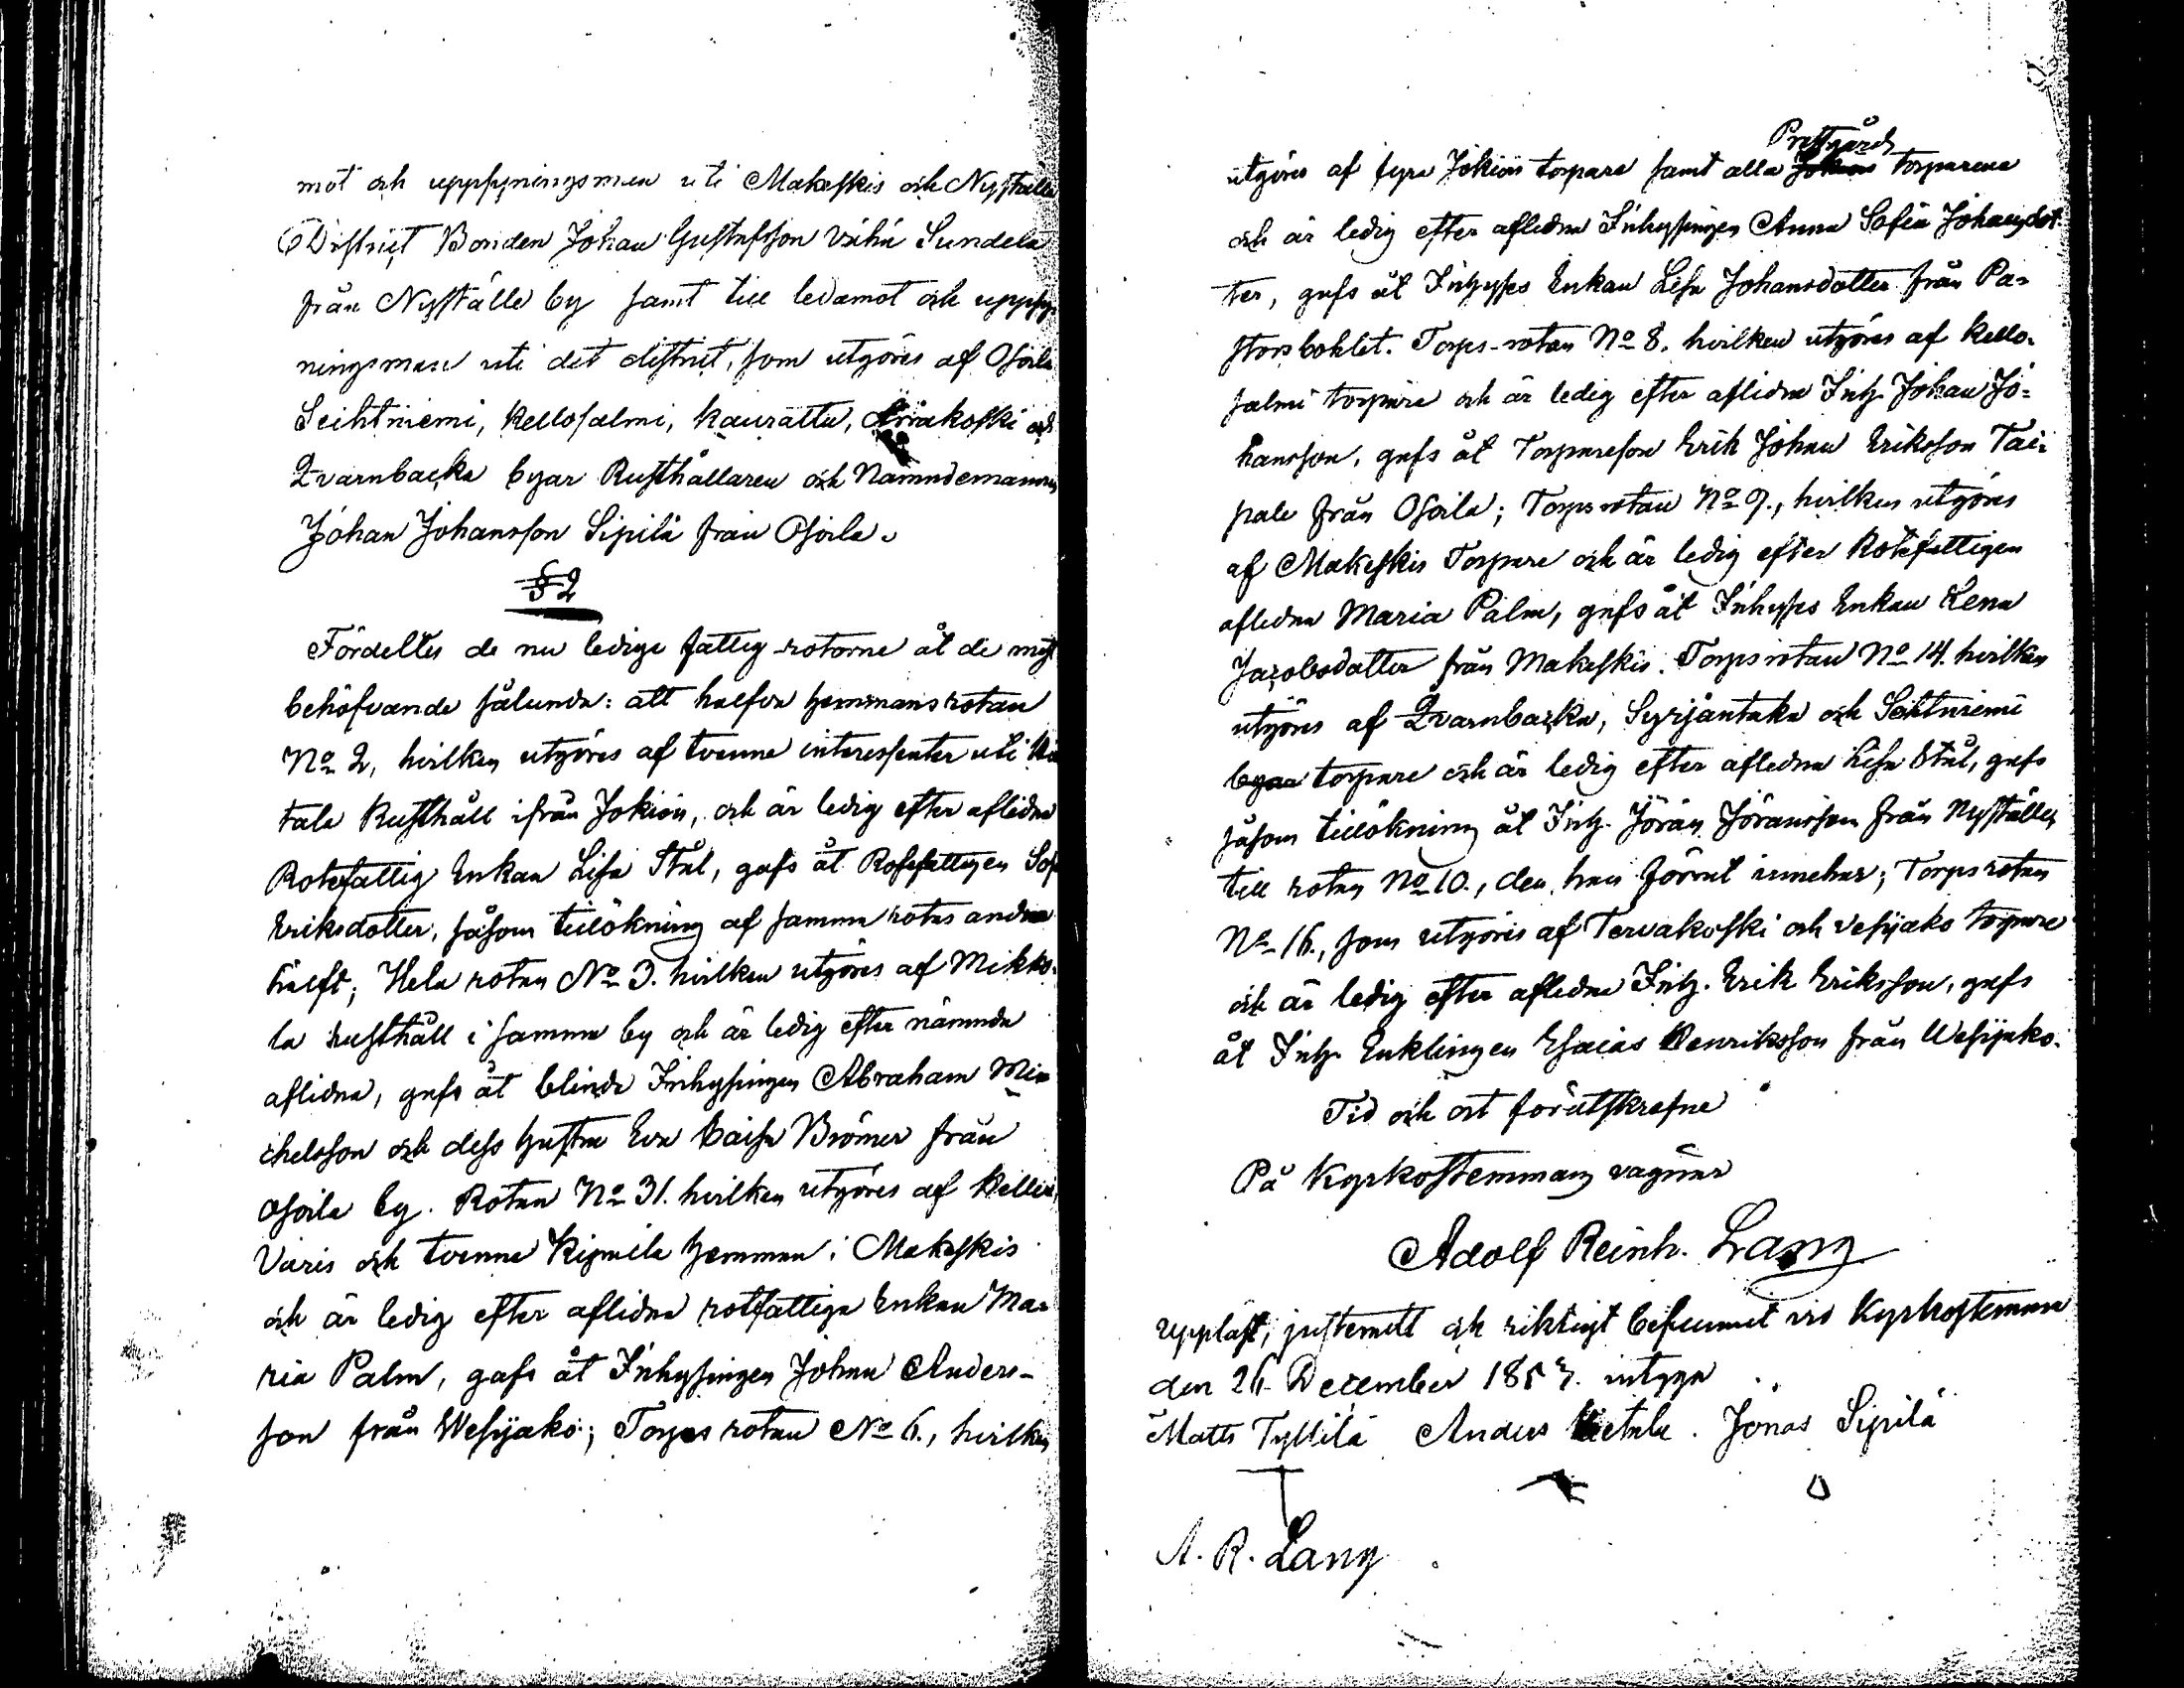 mot och uppsyningsman uti Makeskis och Nyställe
District Bonden Johan Gustafsson Vähä Sundela
från Nyställe by samt till ledamot och uppsy-
ningsman uti det distrikt, som utgöres af Osoila
Seihtniemi, Kellosalmi, Kaurattu, Arrakoski och
Qvarnbacka byar Rusthållaren och Nämndemannen
Johan Johansson Sipilä från Osoila.
§ 2
Fördeltes de nu lediga fattig-rotorne åt de mest
behöfvande sålunda: att halfva hemmansrotan
No 2, hvilken utgöres af tvenne interessenter uti
tala Rusthåll ifrån Jokiois, och är ledig efter aflidna
Rotefattig Enkan Lisa Stål, gafs åt Rotefattigen Sof
Eriksdotter, såsom tillökning af samma rotas andra
hälft; Hela rotan No 3. hvilken utgöres af Mikko-
la rusthåll i samma by och är ledig efter nämnda
aflidna, gafs åt blinda Inhysingen Abraham Mi-
chelsson och dess hustru Eva Caisa Brömer från
Osoila by. Rotan No 31. hvilken utgöres af
Varis och tvenne Kipmila hemman i Makeskis
och är ledig efter aflidna rotfattiga Enkan Ma-
ria Palm, gafs åt Inhysingen Johan Anders-
son från Wesijako; Torps rotan No 6., hvilken
Prestgårds
utgöres af fyra Jokiois torpare samt alla Jokiois torparena
och är ledig efter aflidna Inhysingen Anna Sofia Johansdot-
ter, gafs åt Inhyses Enkan Lisa Johansdotter från Pa-
storsbohlet. Torps-rotan No 8. hvilken utgöres af Kello-
salmi torpare och är ledig efter aflidna Inh. Johan Jo-
hansson, gafs åt Torpareson Erik Johan Eriksson Tai-
pale från Osoila; Torpsrotan No 9., hvilken utgöres
af Makeskis Torpare och är ledig efter Rotefattigen
aflidna Maria Palm, gafs åt Inhyses Enkan Lena
Jacobsdotter från Makeskis. Torpsrotan No 14. hvilken
utgöres af Qvarnbacka, Syrjäntaka och Seihtniemi
byar torpare och är ledig efter aflidna Lisa Stål, gafs
såsom tillökning åt Inh. Jöran Jöransson från Nyställe,
till rotan No 10., den han förrut innehar; Torps rotan
No 16., som utgöres af Tervakoski och Vesijako torpare
och är ledig efter aflidna Inh. Erik Eriksson, gafs
åt Inh. Enklingen Esaias Henriksson från Wesijako.
Tid och ort förutskrefne
På Kyrkostemmans vägnar
Adolf Reinh. Lang
Uppläst, justeradt och riktigt befunnet vid Kyrkostemma
den 26. December 1857. intyga
Matts Tyllilä Anders Jonas Sipilä
A. R. Lang